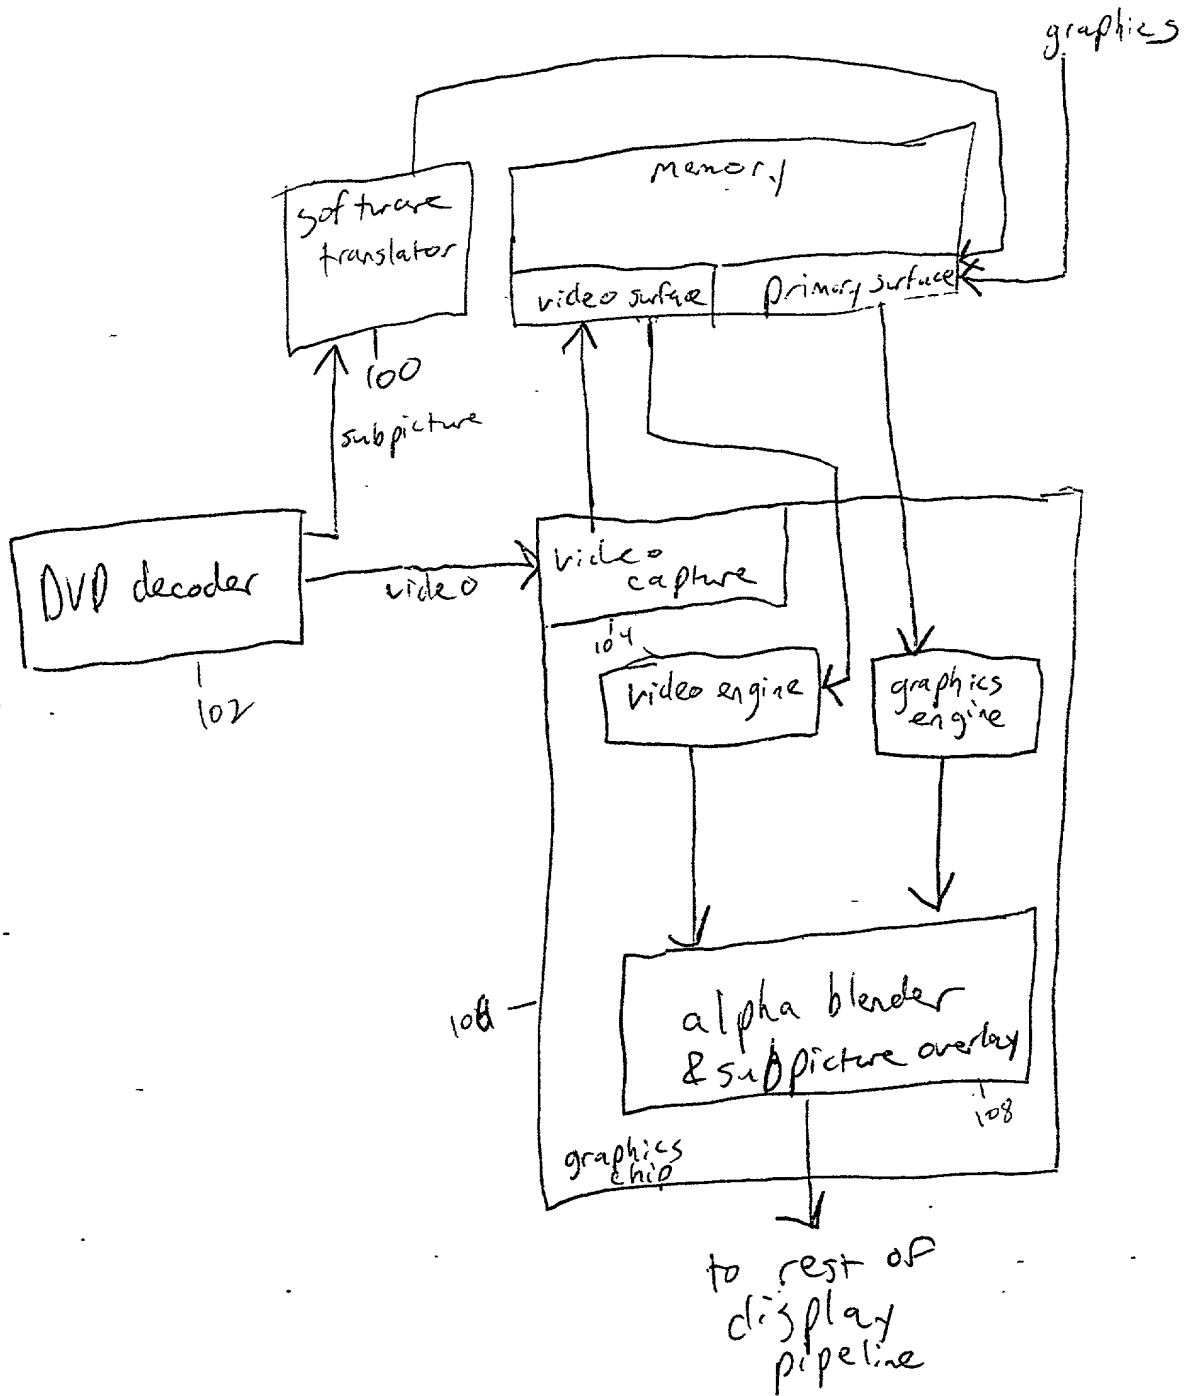 graphics
memory
software
translator
video surface
primary surface
100
subpicture
DVD decoder
video
video
capture
104
102
video engine
graphics
engine
alpha blender
& subpicture overlay
108
graphics
chip
to rest of
display
pipeline